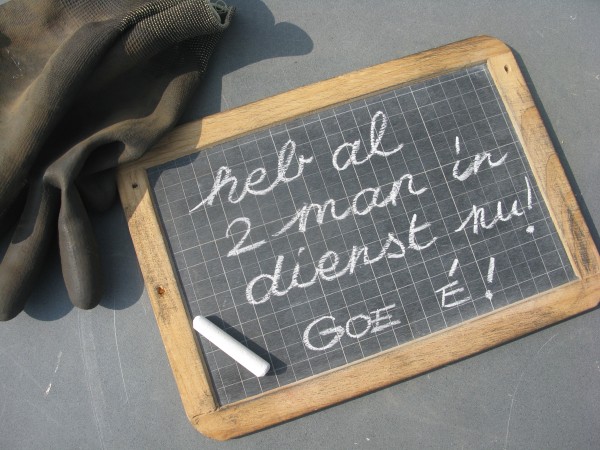 heb al
2 man in
dienst nu!
GOE É!